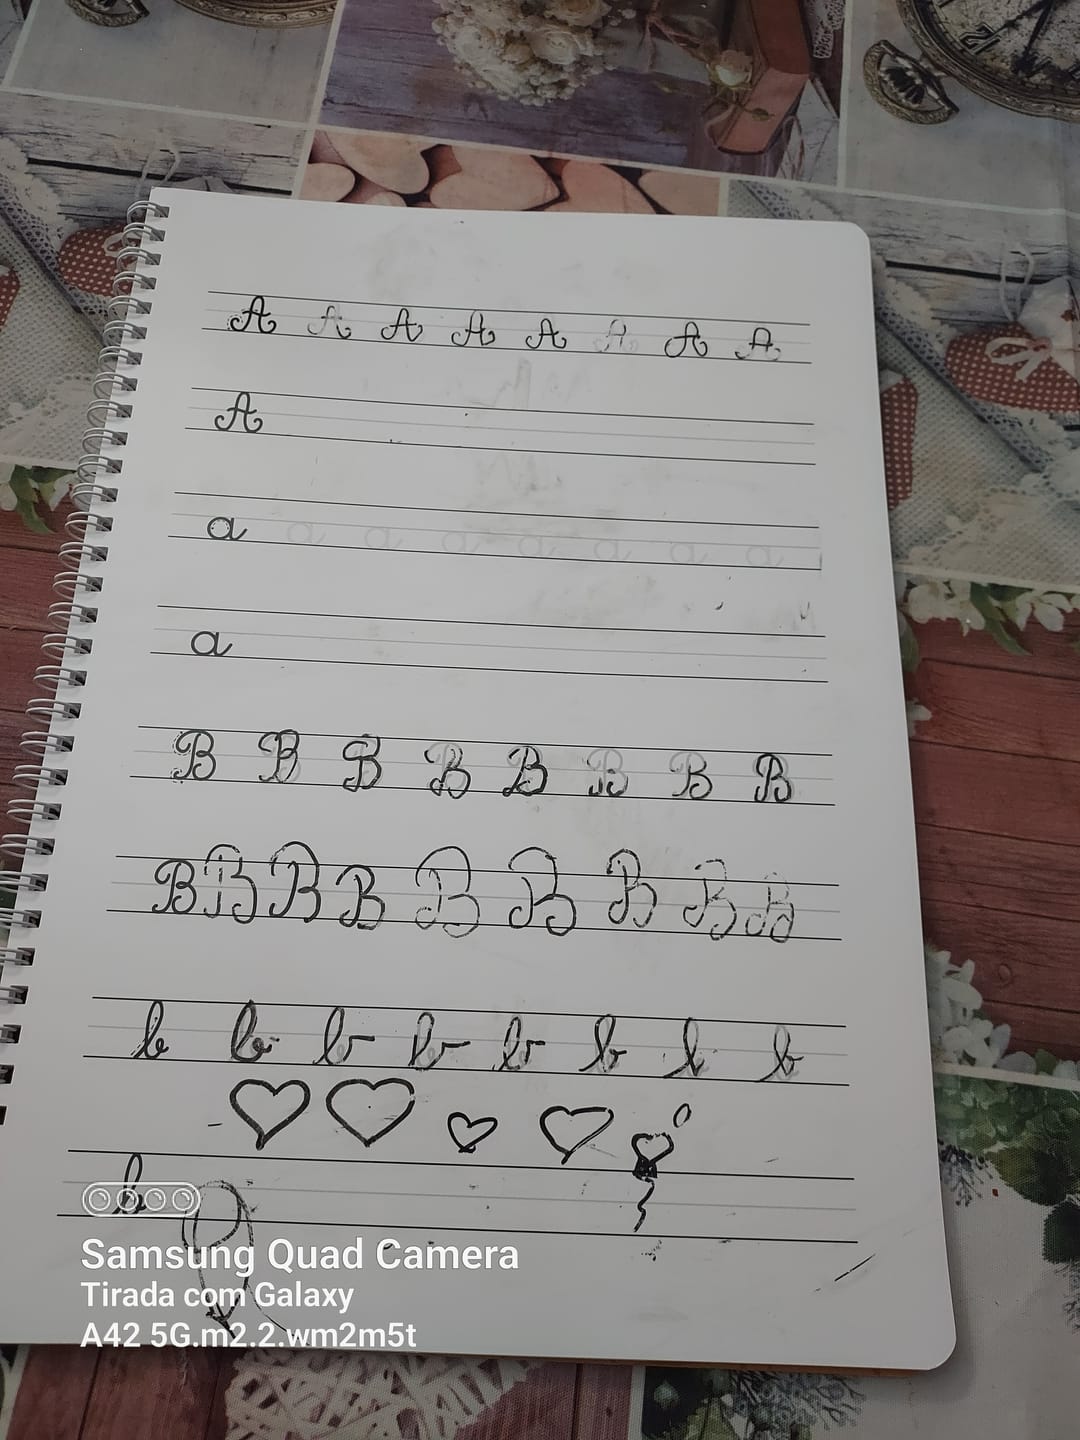 A A A A A A A A
A
a a a a a a a a
a
B B B B B B B B
B B B B B B B B B
b b b b b b b b
b
Samsung Quad Camera
Tirada com Galaxy
A42 5G.m2.2.wm2m5t